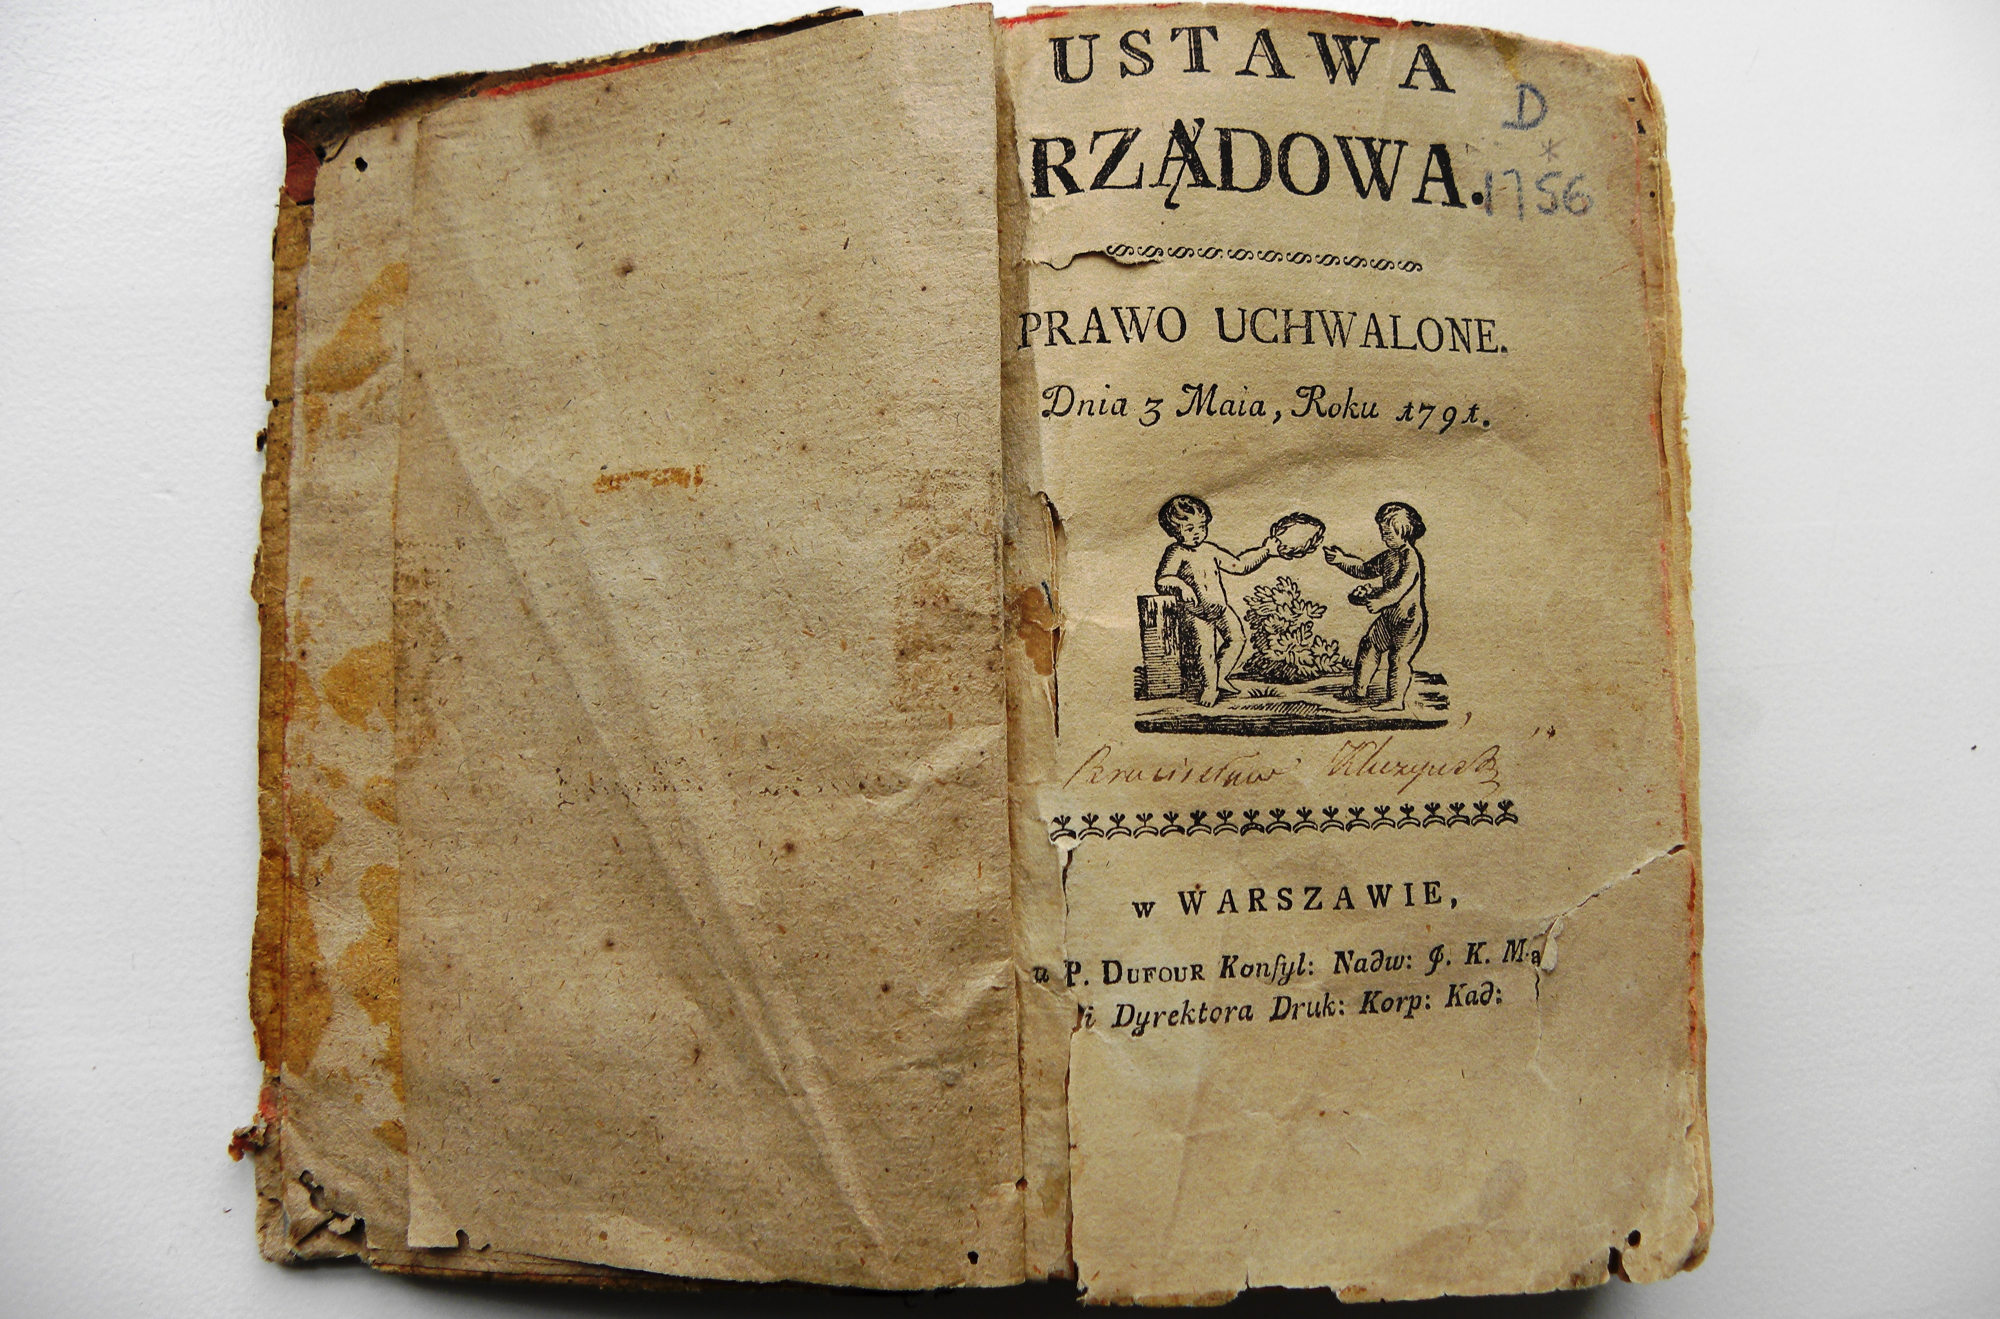 USTAWA
D
RZĄDOWA.
1756
PRAWO UCHWALONE.
Dnia 3 Maia, Roku 1791.
w WARSZAWIE,
u P. DUFOUR Konſyl: Nadw: J. K. M
i Dyrektora Druk: Korp: Kad: